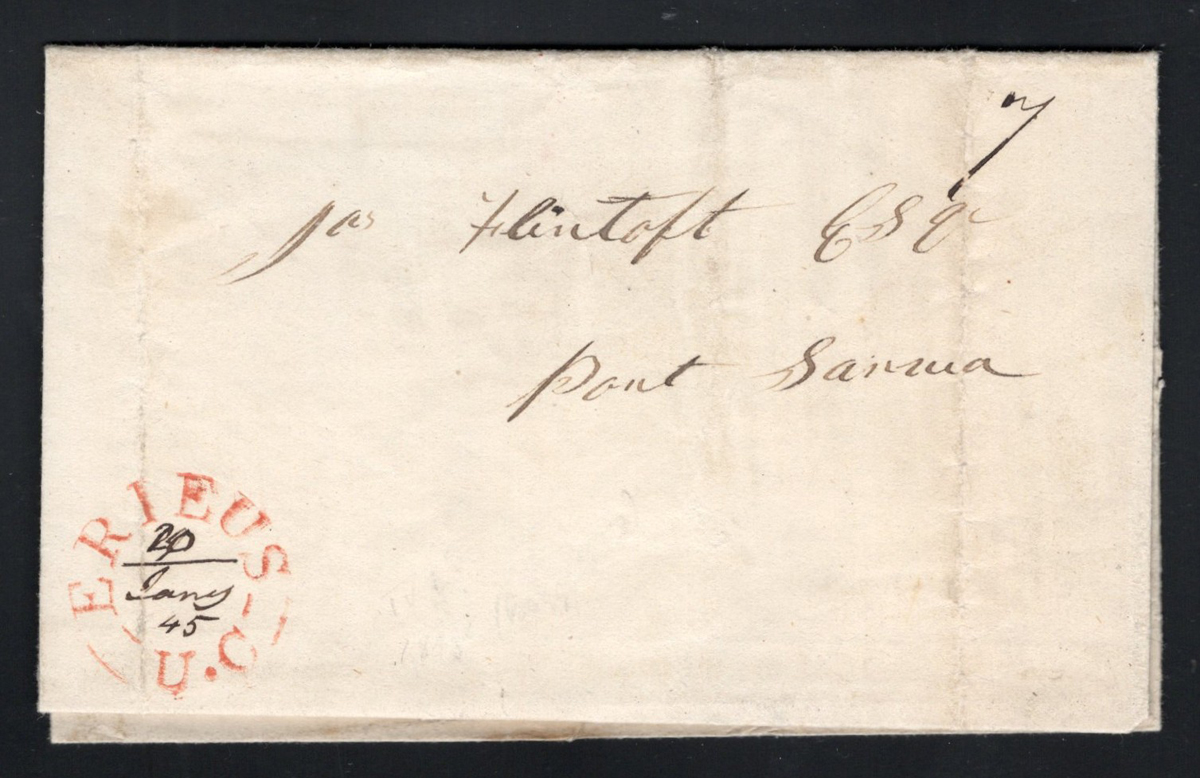 7
Jas Flintoft Esqr
Port Sarnia
ERIEUS
20
Jany
45
U.C